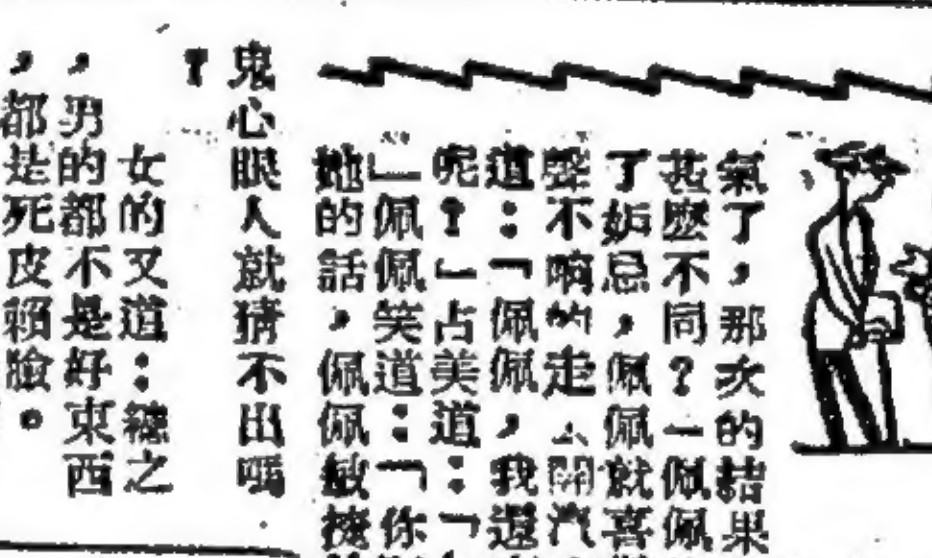 氣了，那次的結果
甚麼不同？一佩佩
了妬忌，佩佩就喜
聲不响的走 開汽
道：「佩佩，我還
呢？」占美道：「
」佩佩笑道：「你
她的話，佩佩敏
鬼心眼人就猜不出嗎
？
女的又道：總之
，男的都不是好東西
，都是死皮賴臉。